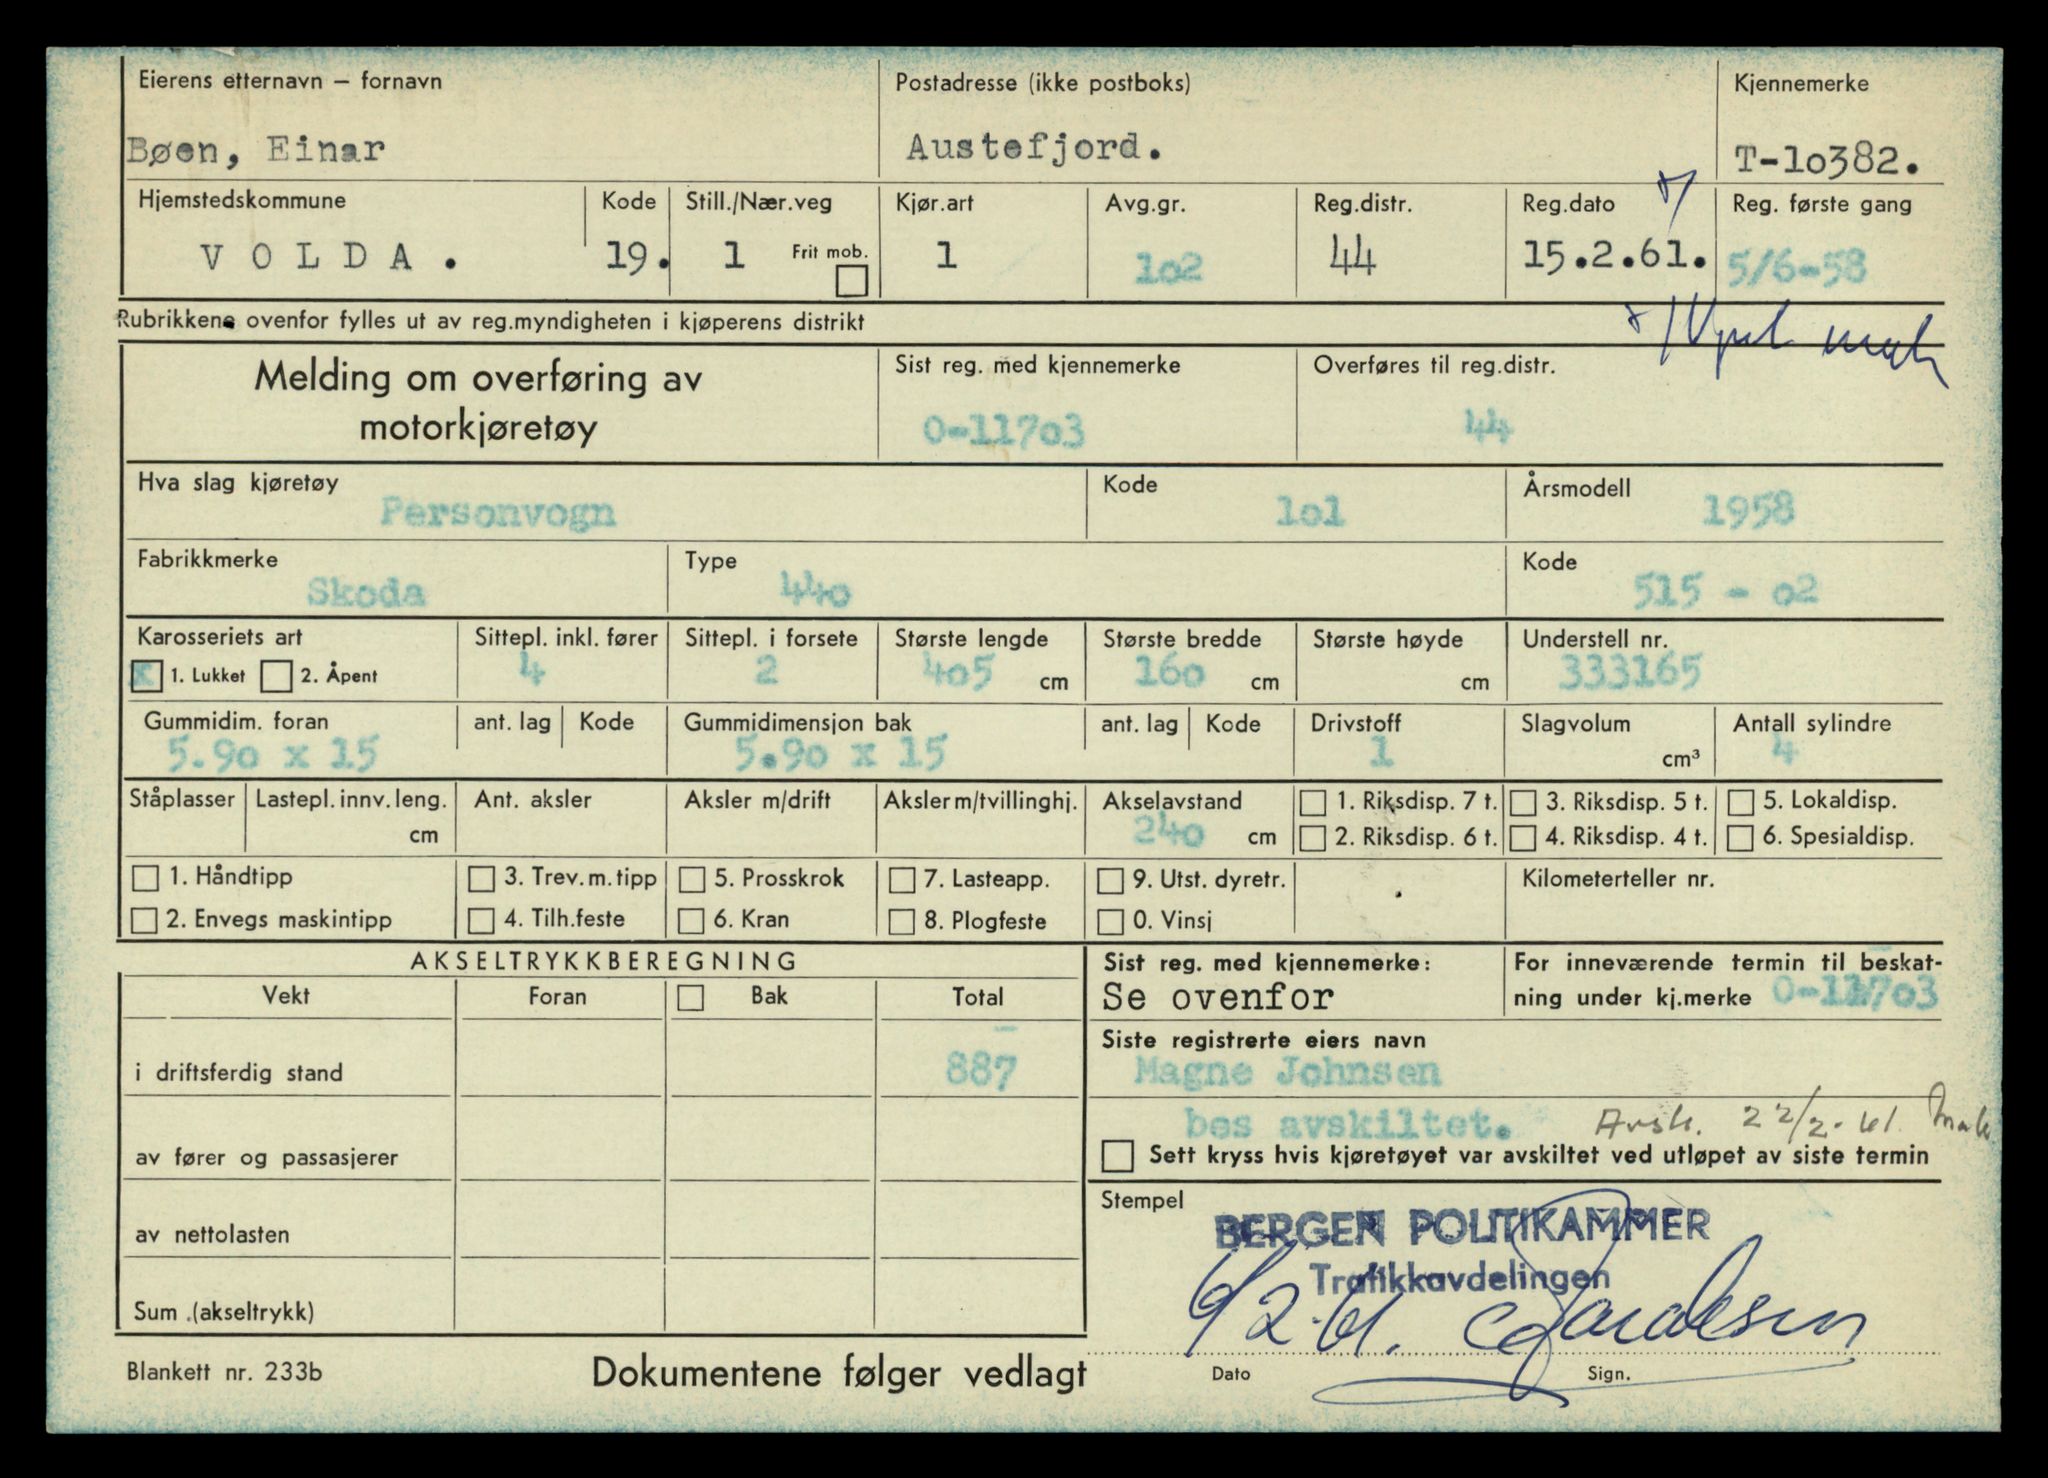 Eierens etternavn – fornavn
Postadresse (ikke postboks)
Kjennemerke
Bøen, Einar
Austefjord.
T-1o382.
Hjemstedskommune
Kode
Still./Nær.veg
Kjør.art
Avg.gr.
Reg.distr.
Reg.dato
Reg. første gang
V O L D A .
19.
1
Frit mob.
1
1o2
44
15.2.61.
5/6-58
Rubrikkene ovenfor fylles ut av reg.myndigheten i kjøperens distrikt
Melding om overføring av
motorkjøretøy
Sist reg. med kjennemerke
Overføres til reg.distr.
O-117o3
44
Hva slag kjøretøy
Kode
Årsmodell
Personvogn
1o1
1958
Fabrikkmerke
Type
Kode
Skoda
44o
515 - o2
Karosseriets art
Sittepl. inkl. fører
Sittepl. i forsete
Største lengde
Største bredde
Største høyde
Understell nr.
x 1. Lukket 2. Åpent
4
2
4o5 cm
16o cm
cm
333165
Gummidim. foran
ant. lag
Kode
Gummidimensjon bak
ant. lag
Kode
Drivstoff
Slagvolum
Antall sylindre
5.9o x 15
5.9o x 15
1
cm³
4
Ståplasser
Lastepl. innv. leng.
Ant. aksler
Aksler m/drift
Aksler m/tvillinghj.
Akselavstand
1. Riksdisp. 7 t.
3. Riksdisp. 5 t.
5. Lokaldisp.
cm
24o cm
2. Riksdisp. 6 t.
4. Riksdisp. 4 t.
6. Spesialdisp.
1. Håndtipp
3. Trev. m. tipp
5. Prosskrok
7. Lasteapp.
9. Utst. dyretr.
Kilometerteller nr.
2. Envegs maskintipp
4. Tilh.feste
6. Kran
8. Plogfeste
0. Vinsj
AKSELTRYKKBEREGNING
Sist reg. med kjennemerke:
For inneværende termin til beskat-
Vekt
Foran
Bak
Total
Se ovenfor
ning under kj.merke O-117o3
Siste registrerte eiers navn
i driftsferdig stand
887
Magne Johnsen
bes avskiltet.
Avsk. 22/2-61.
av fører og passasjerer
Sett kryss hvis kjøretøyet var avskiltet ved utløpet av siste termin
Stempel
av nettolasten
BERGEN POLITIKAMMER
Trafikkavdelingen
Sum (akseltrykk)
6/2-61.
Blankett nr. 233b
Dokumentene følger vedlagt
Dato
Sign.